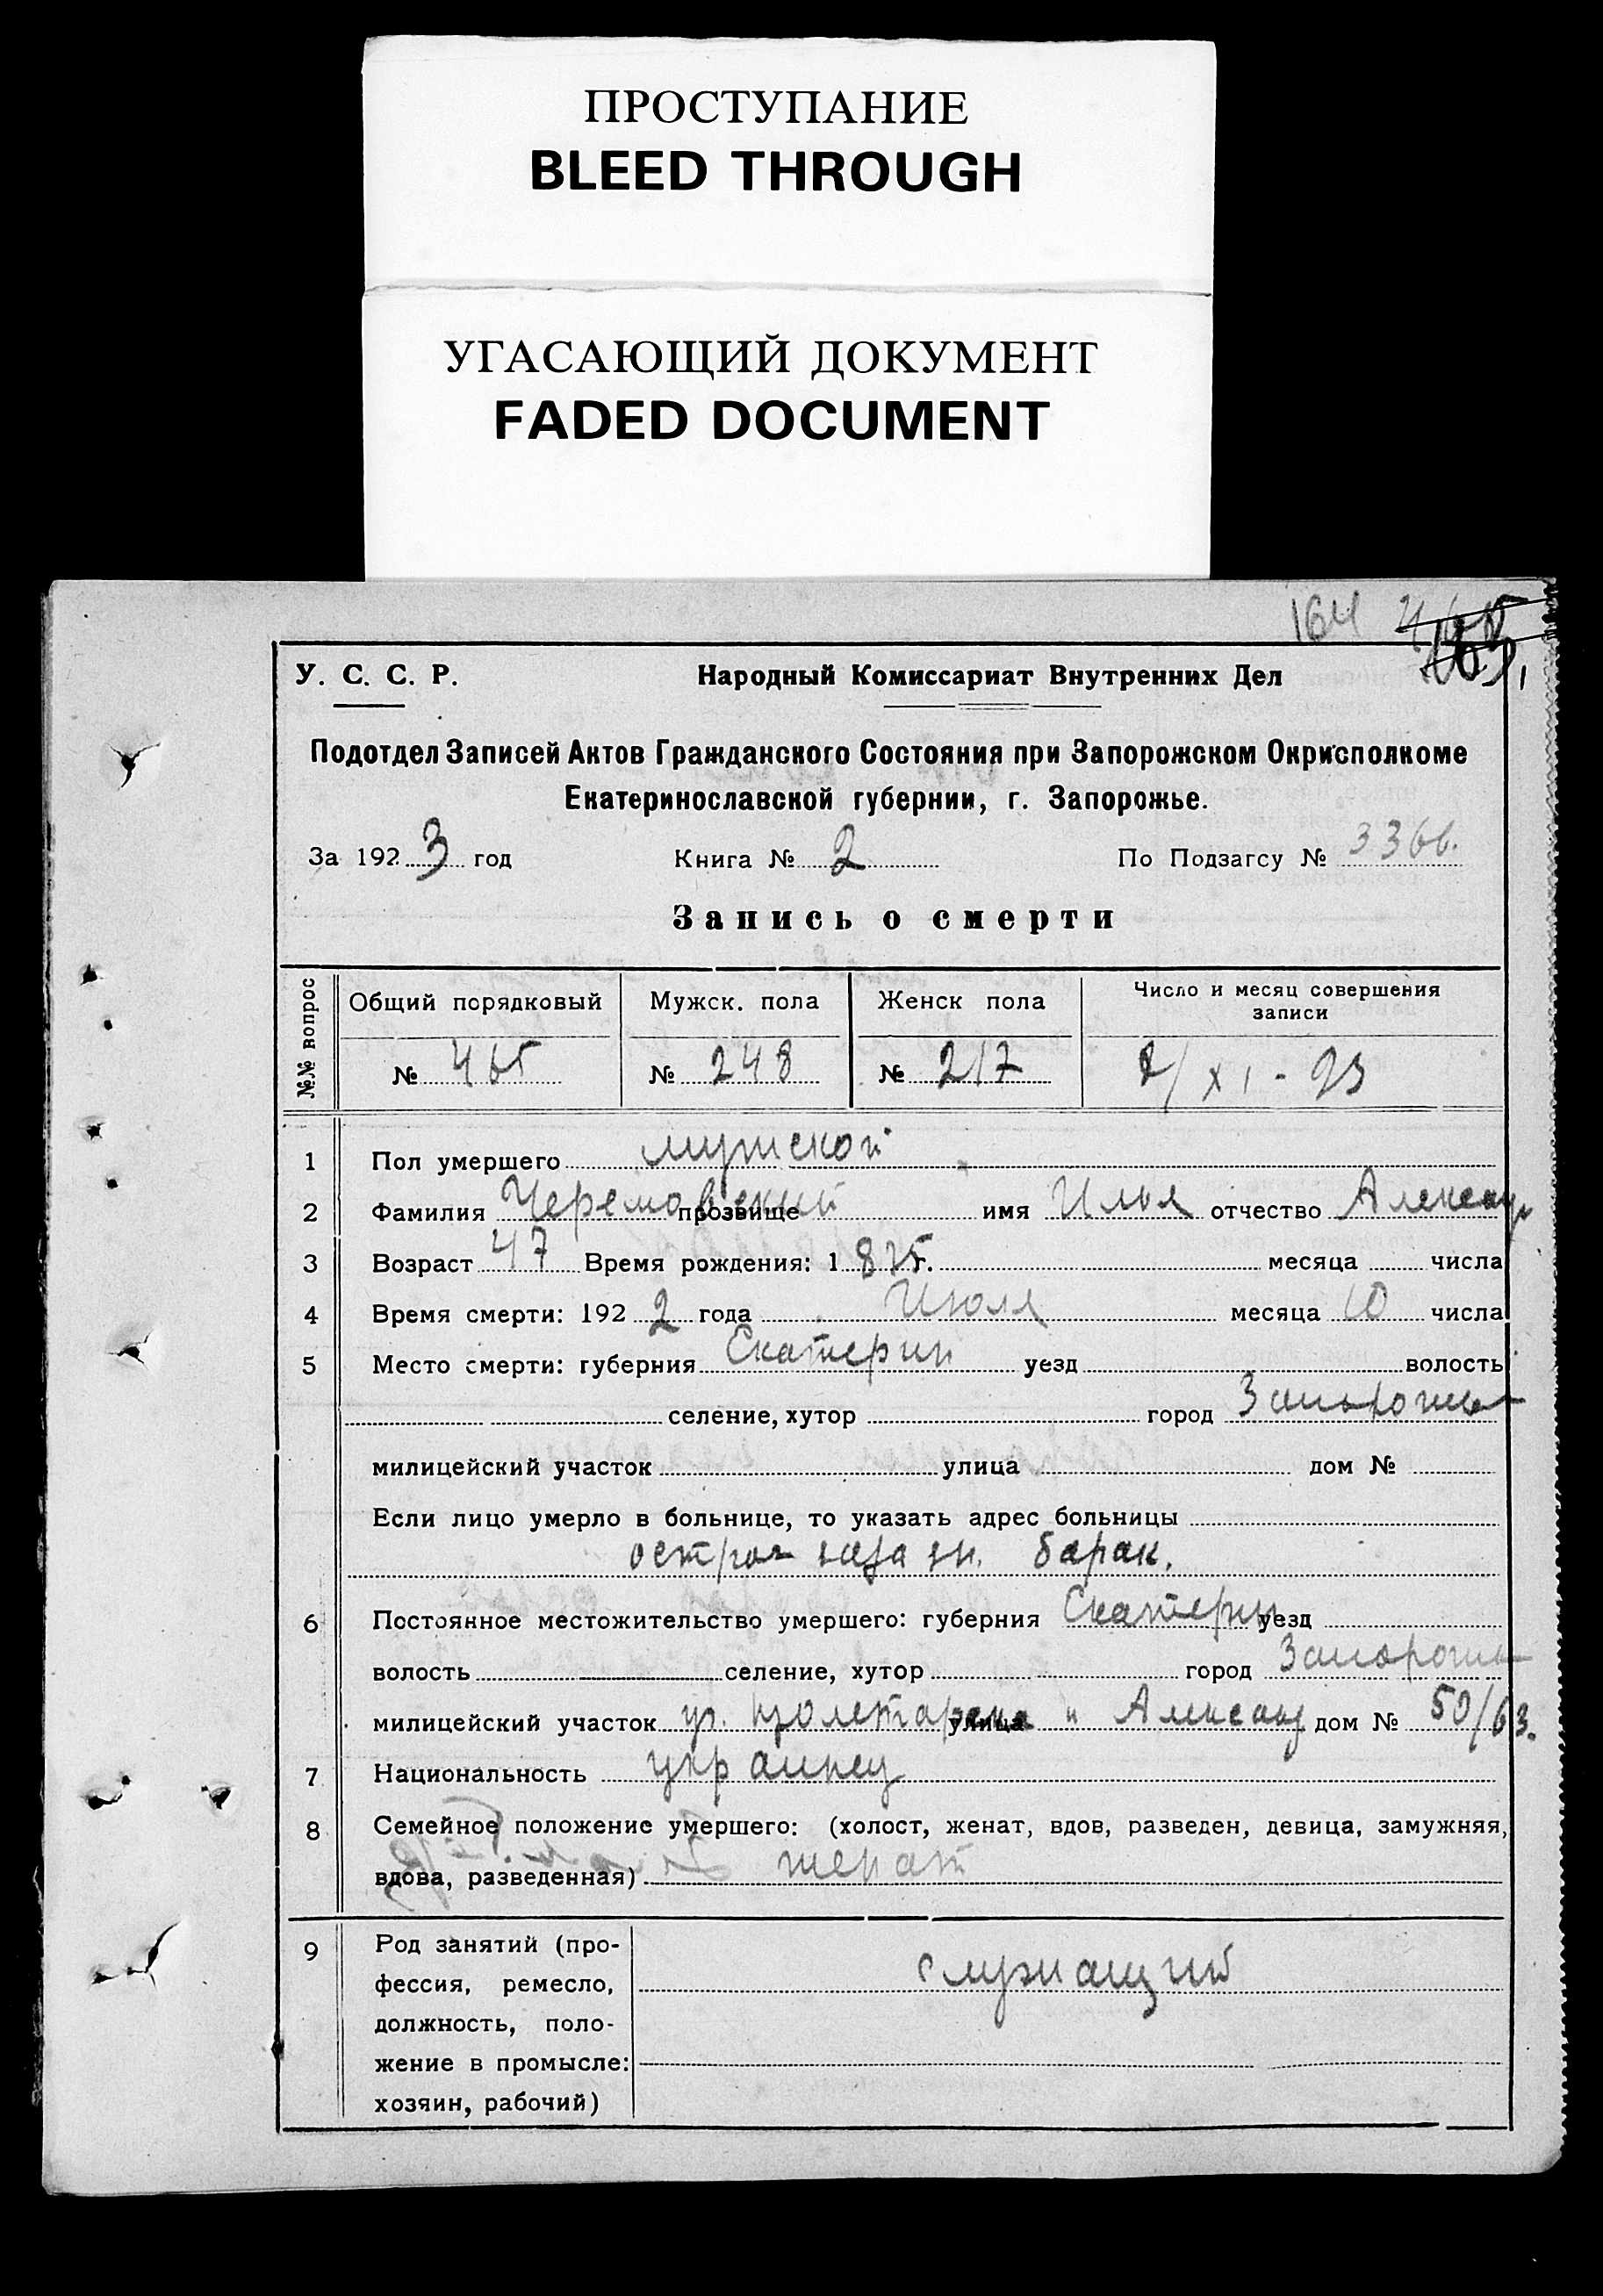 ПРОСТУПАНИЕ
BLEED THROUGH
УГАСАЮЩИЙ ДОКУМЕНТ
FADED DOCUMENT
164
У. С. С. Р. Народный Комиссариат Внутренних Дел
Подотдел Записей Актов Гражданского Состояния при Запорожском Окрисполкоме
Екатеринославской губернии, г. Запорожье.
За 1923 год Книга № 2 По Подзагсу № 336
Запись о смерти
№№ вопрос Общий порядковый Мужск. пола Женск пола Число и месяц совершения
записи
№ 465 № 248 № 217 2/XI-23
1 Пол умершего мужской
2 Фамилия прозвище имя Илья отчество Александр
3 Возраст 47 Время рождения: 1875 г. месяца числа
4 Время смерти: 1922 года Июля месяца 10 числа
5 Место смерти: губерния Екатерин уезд волость
селение, хутор город Запорожье
милицейский участок улица дом №
Если лицо умерло в больнице, то указать адрес больницы
барак.
6 Постоянное местожительство умершего: губерния Екатерин уезд
волость селение, хутор город Запорожье
милицейский участок уг. улица и Александ дом № 50/63.
7 Национальность украинец
8 Семейное положение умершего: (холост, женат, вдов, разведен, девица, замужняя,
вдова, разведенная) женат
9 Род занятий (про-
фессия, ремесло, служащий
должность, поло-
жение в промысле:
хозяин, рабочий)